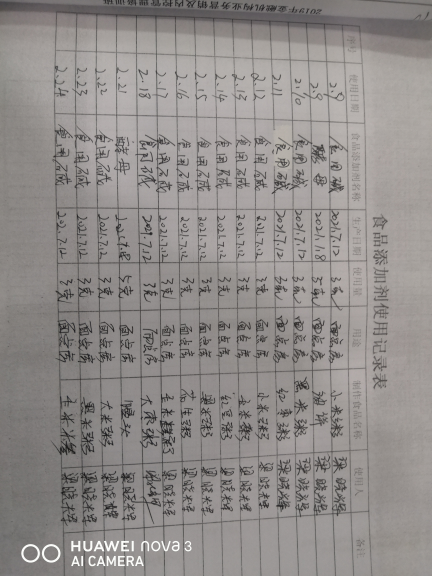 2019年金融机构业务营销及内控管理培训班
食品添加剂使用记录表
序号 使用日期 食品添加剂名称 生产日期 使用量 用途 制作食品名称 使用人 备注
2.8 食用碱 2021.7.12 3克 面点房 小米粥 梁晓
2.9 酵母 2021.1.8 5克 面点房 油饼 梁晓
2.10 食用碱 2021.7.12 3克 面点房 黑米粥 梁晓
2.11 食用碱 2021.7.12 3克 面点房 红枣粥 梁晓
2.12 食用碱 2021.7.12 3克 面点房 小米粥 梁晓
2.13 食用碱 2021.7.12 3克 面点房 玉米粥 梁晓
2.14 食用碱 2021.7.12 3克 面点房 红豆粥 梁晓
2.15 食用碱 2021.7.12 3克 面点房 黑米粥 梁晓
2.16 食用碱 2021.7.12 3克 面点房 花生粥 梁晓
2.17 食用碱 2021.7.12 3克 面点房 玉米粥 梁晓
2.18 食用碱 2021.7.12 3克 面点房 大枣粥
2.21 酵母 5克 面点房 馒头 梁晓
2.22 食用碱 2021.7.12 3克 面点房 大米粥 梁晓
2.23 食用碱 2021.7.12 3克 面点房 黑米粥 梁晓
2.24 食用碱 2021.7.12 3克 面点房 玉米 梁晓
HUAWEI nova 3
AI CAMERA